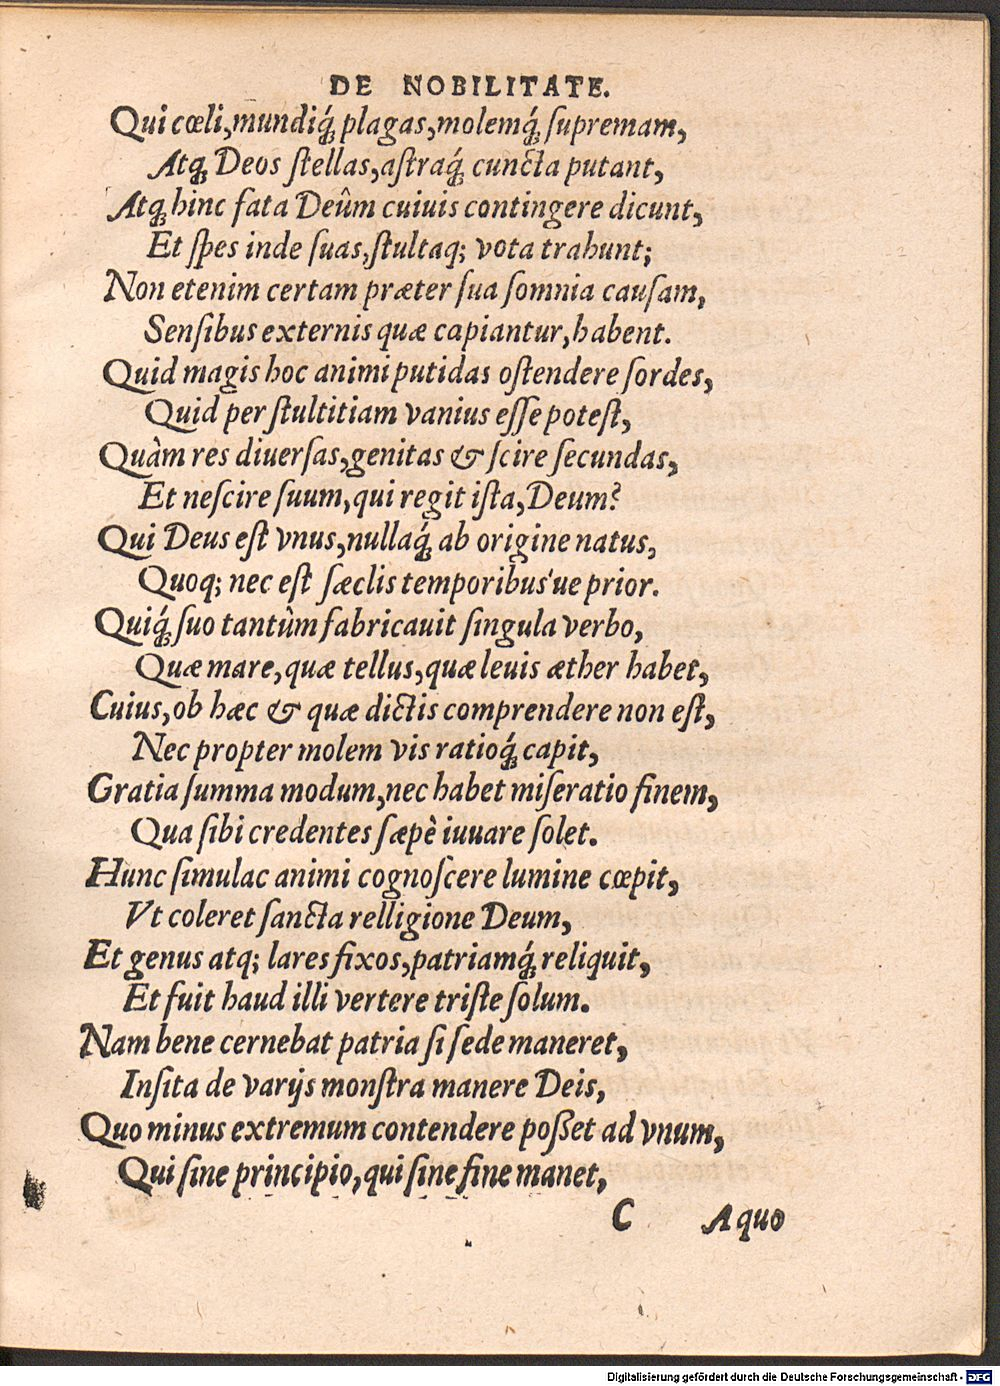 DE NOBILITATE.
Qui cœli, mundiq́; plagas, molemq́; ſupremam,
Atq; Deos ſtellas, aſtraq́; cuncta putant,
Atq; hinc fata Deûm cuiuis contingere dicunt,
Et ſpes inde ſuas, ſtultaq; vota trahunt;
Non etenim certam præter ſua ſomnia cauſam,
Senſibus externis quæ capiantur, habent.
Quid magis hoc animi putidas oſtendere ſordes,
Quid per ſtultitiam vanius eſſe poteſt,
Quàm res diuerſas, genitas & ſcire ſecundas,
Et neſcire ſuum, qui regit iſta, Deum?
Qui Deus eſt vnus, nullaq́; ab origine natus,
Quoq; nec eſt ſæclis temporibus'ue prior.
Quiq́; ſuo tantùm fabricauit ſingula verbo,
Quæ mare, quæ tellus, quæ leuis æther habet,
Cuius, ob hæc & quæ dictis comprendere non eſt,
Nec propter molem vis ratioq́; capit,
Gratia ſumma modum, nec habet miſeratio finem,
Qua ſibi credentes ſæpè iuuare ſolet.
Hunc ſimulac animi cognoſcere lumine cœpit,
Vt coleret ſancta relligione Deum,
Et genus atq; lares fixos, patriamq́; reliquit,
Et fuit haud illi vertere triſte ſolum.
Nam bene cernebat patria ſi ſede maneret,
Inſita de varijs monſtra manere Deis,
Quo minus extremum contendere poßet ad vnum,
Qui ſine principio, qui ſine fine manet,
C A quo
Digitalisierung gefördert durch die Deutsche Forschungsgemeinschaft - DFG